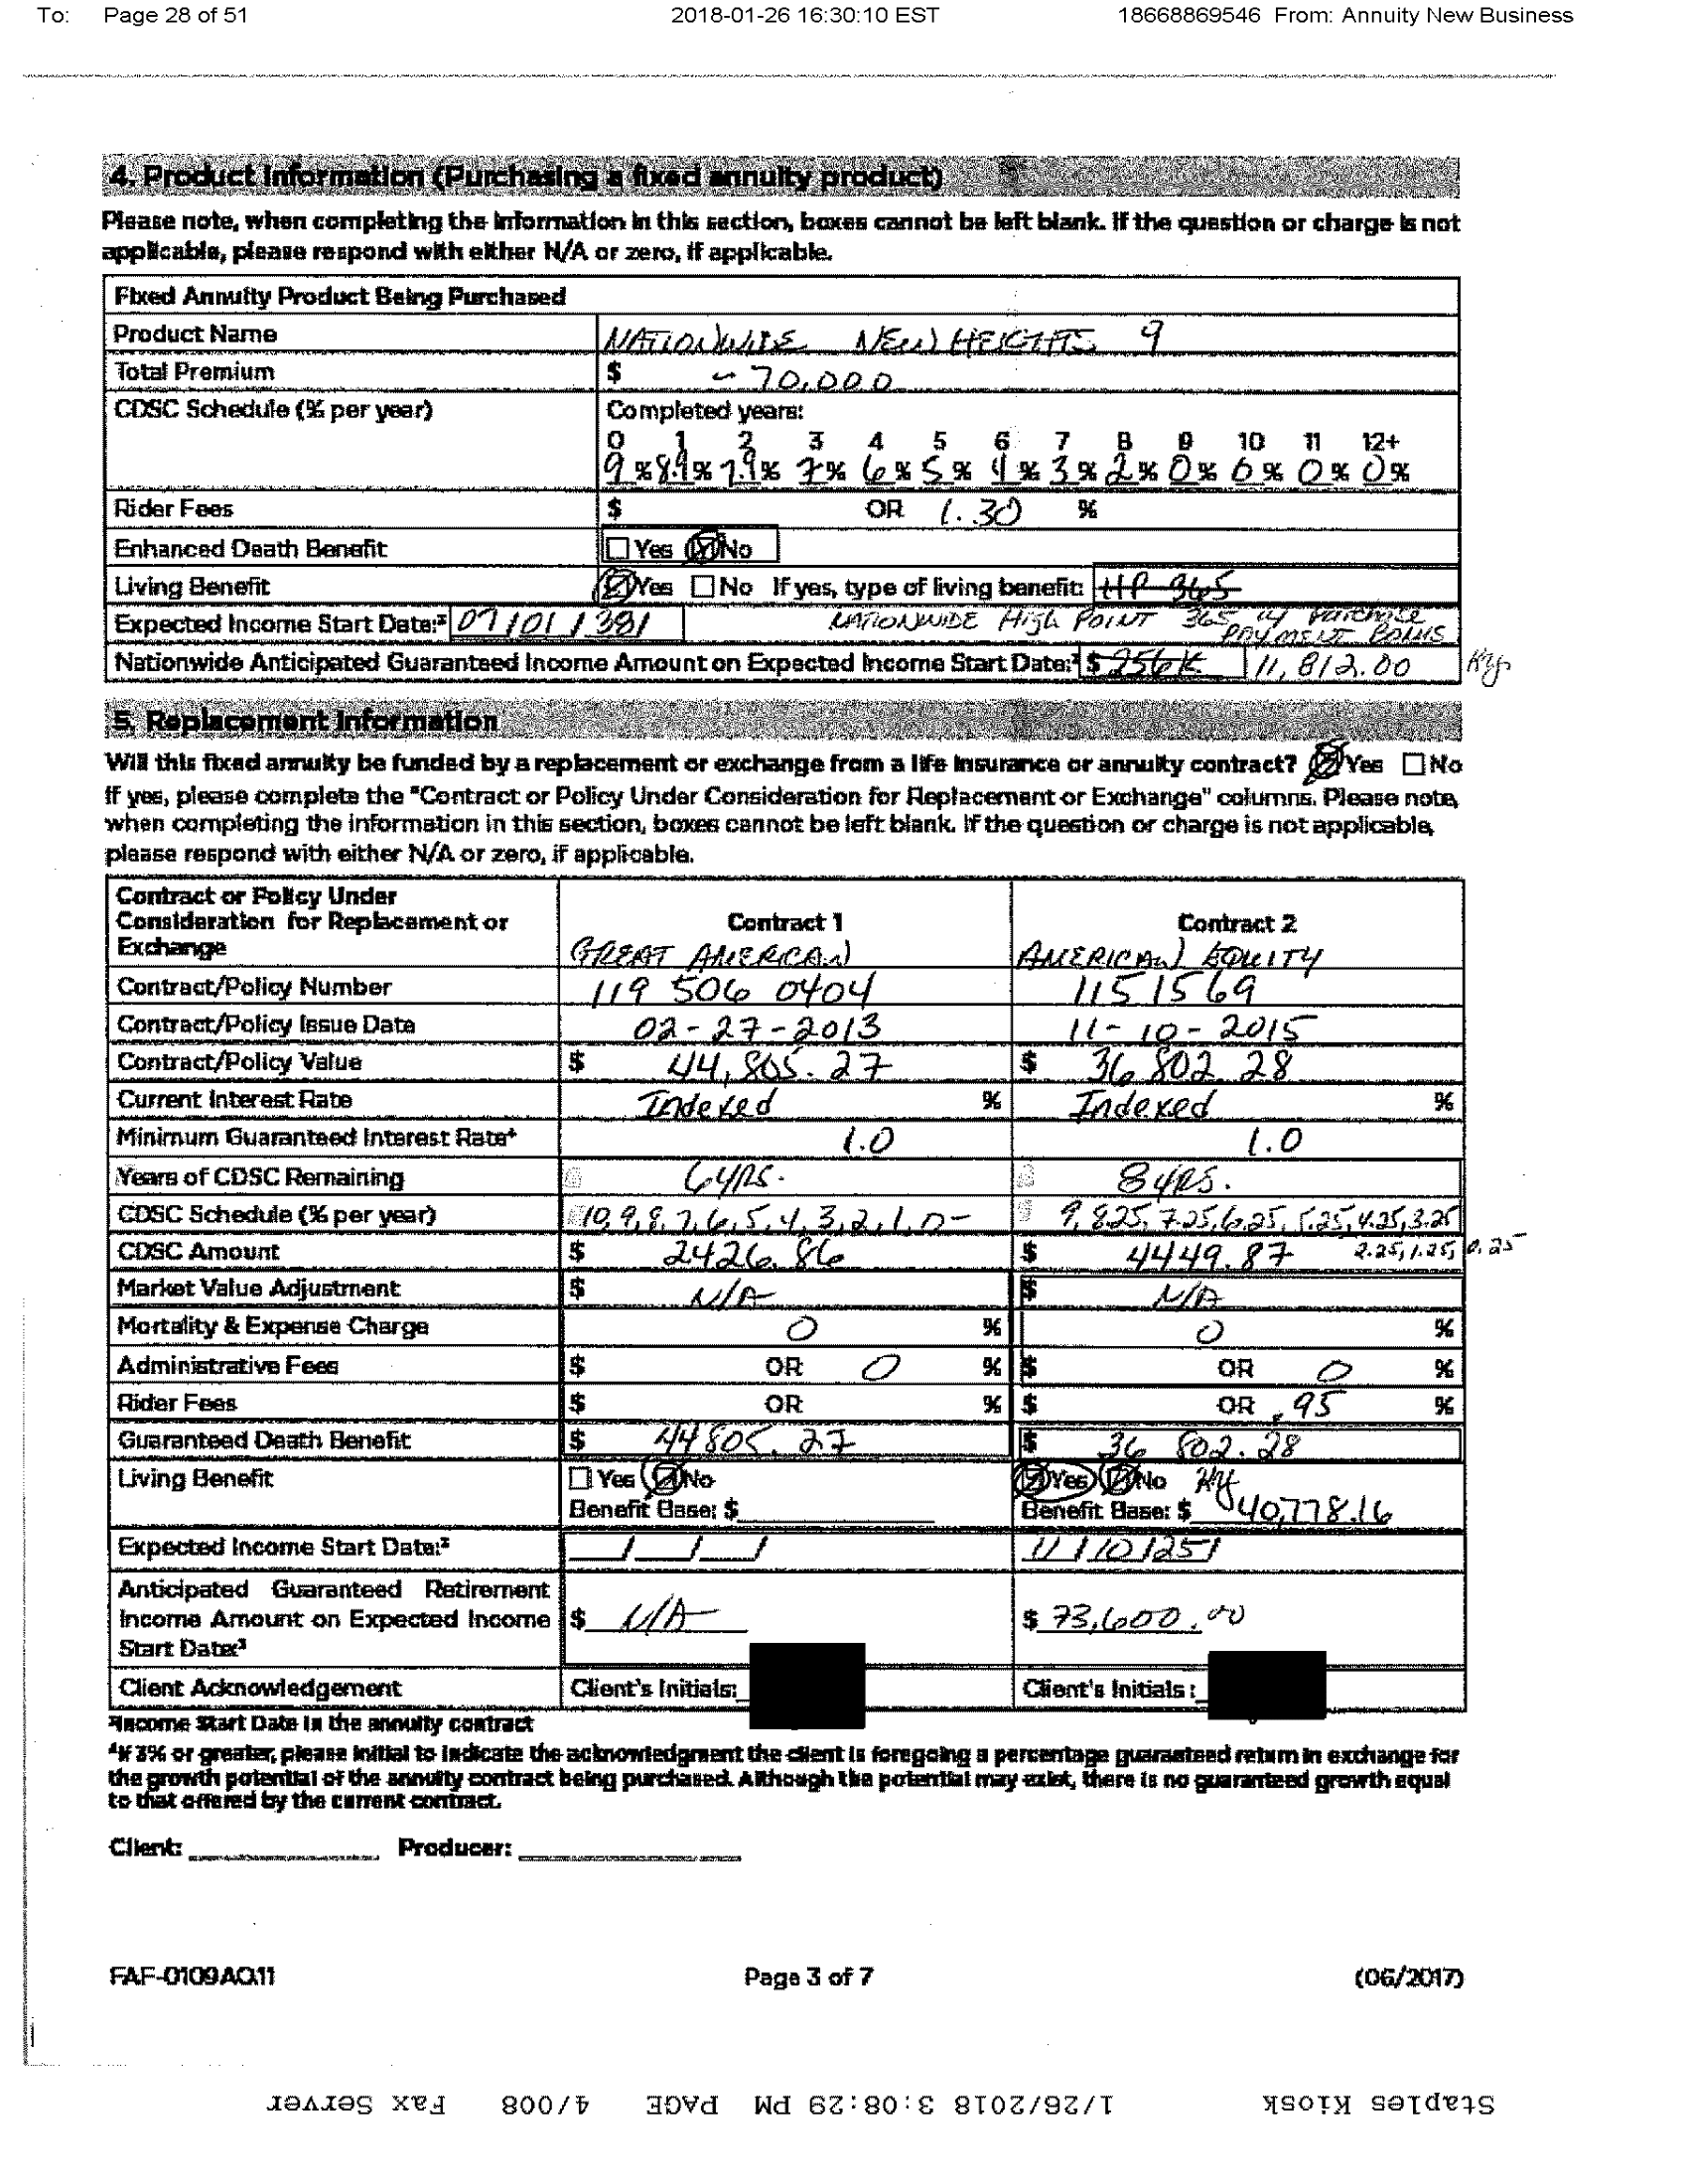 To: Page 28 of 51 2018-01-26 16:30:10 EST 18668869546 From: Annuity New Business
4. Product Information (Purchasing a fixed annuity product)
Please note, when completing the information in this section, boxes cannot be left blank. If the question or charge is not
applicable, please respond with either N/A or zero, if applicable.
Fixed Annuity Product Being Purchased
Product Name NATIONWIDE NEW HEIGHTS 9
Total Premium $ ~70,000
CDSC Schedule (% per year) Completed years:
0 1 2 3 4 5 6 7 8 9 10 11 12+
9 % 8.9 % 7.9 % 7 % 6 % 5 % 4 % 3 % 2 % 0 % 0 % 0 % 0 %
Rider Fees $ OR 1.30 %
Enhanced Death Benefit Yes No
Living Benefit Yes No If yes, type of living benefit: HP 365
Expected Income Start Date:² 07/01/38/ NATIONWIDE High POINT 365 w/ purchase
PAYMENT BONUS
Nationwide Anticipated Guaranteed Income Amount on Expected Income Start Date:³ $ 256K 11,812.00
5. Replacement Information
Will this fixed annuity be funded by a replacement or exchange from a life insurance or annuity contract? Yes No
If yes, please complete the "Contract or Policy Under Consideration for Replacement or Exchange" columns. Please note,
when completing the information in this section, boxes cannot be left blank. If the question or charge is not applicable,
please respond with either N/A or zero, if applicable.
Contract or Policy Under
Consideration for Replacement or Contract 1 Contract 2
Exchange GREAT AMERICAN AMERICAN EQUITY
Contract/Policy Number 119 506 0404 1151569
Contract/Policy Issue Date 02-27-2013 11-10-2015
Contract/Policy Value $ 44,805.27 $ 36 802.28
Current Interest Rate Indexed % Indexed %
Minimum Guaranteed Interest Rate⁴ 1.0 1.0
Years of CDSC Remaining 6 YRS. 8 YRS.
CDSC Schedule (% per year) 10,9,8,7,6,5,4,3,2,1,0- 9, 8.25, 7.25, 6.25, 5.25, 4.25, 3.25
CDSC Amount $ 2426.86 $ 4449.87 2.25, 1.25, 0.25
Market Value Adjustment $ N/A $ N/A
Mortality & Expense Charge 0 % 0 %
Administrative Fees $ OR 0 % $ OR 0 %
Rider Fees $ OR % $ OR .95 %
Guaranteed Death Benefit $ 44805.27 $ 36 802.28
Living Benefit Yes No Yes No
Benefit Base: $ Benefit Base: $ 40,778.16
Expected Income Start Date:² / / / 11/10/25/
Anticipated Guaranteed Retirement
Income Amount on Expected Income $ N/A $ 73,600.00
Start Date:³
Client Acknowledgement Client's Initials: Client's Initials:
³Income Start Date is the annuity contract
⁴If 3% or greater, please initial to indicate the acknowledgment the client is foregoing a percentage guaranteed return in exchange for
the growth potential of the annuity contract being purchased. Although the potential may exist, there is no guaranteed growth equal
to that offered by the current contract.
Client: Producer:
FAF-0109AO.11 Page 3 of 7 (06/2017)
Staples Kiosk 1/26/2018 3:08:29 PM PAGE 4/008 Fax Server